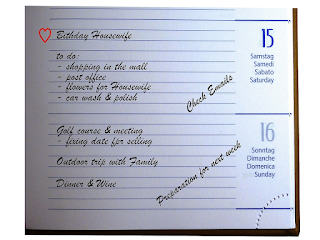 Bithday Housewife
15
to do:
Samstag
- shopping in the mall
Samedi
- post office
Sabato
- flowers for Housewife
Saturday
- car wash & polish
Check Emails
Golf course & meeting
16
- fixing date for selling
Sonntag
Outdoor trip with Family
Dimanche
Domenica
Dinner & Wine
Sunday
Preparation for next week